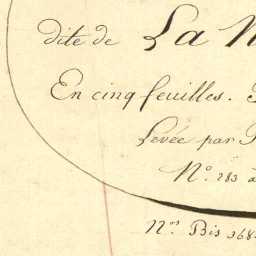 dite de La
En cinq feuilles.
Levée par
N.º 283
N.ºˢ Bis